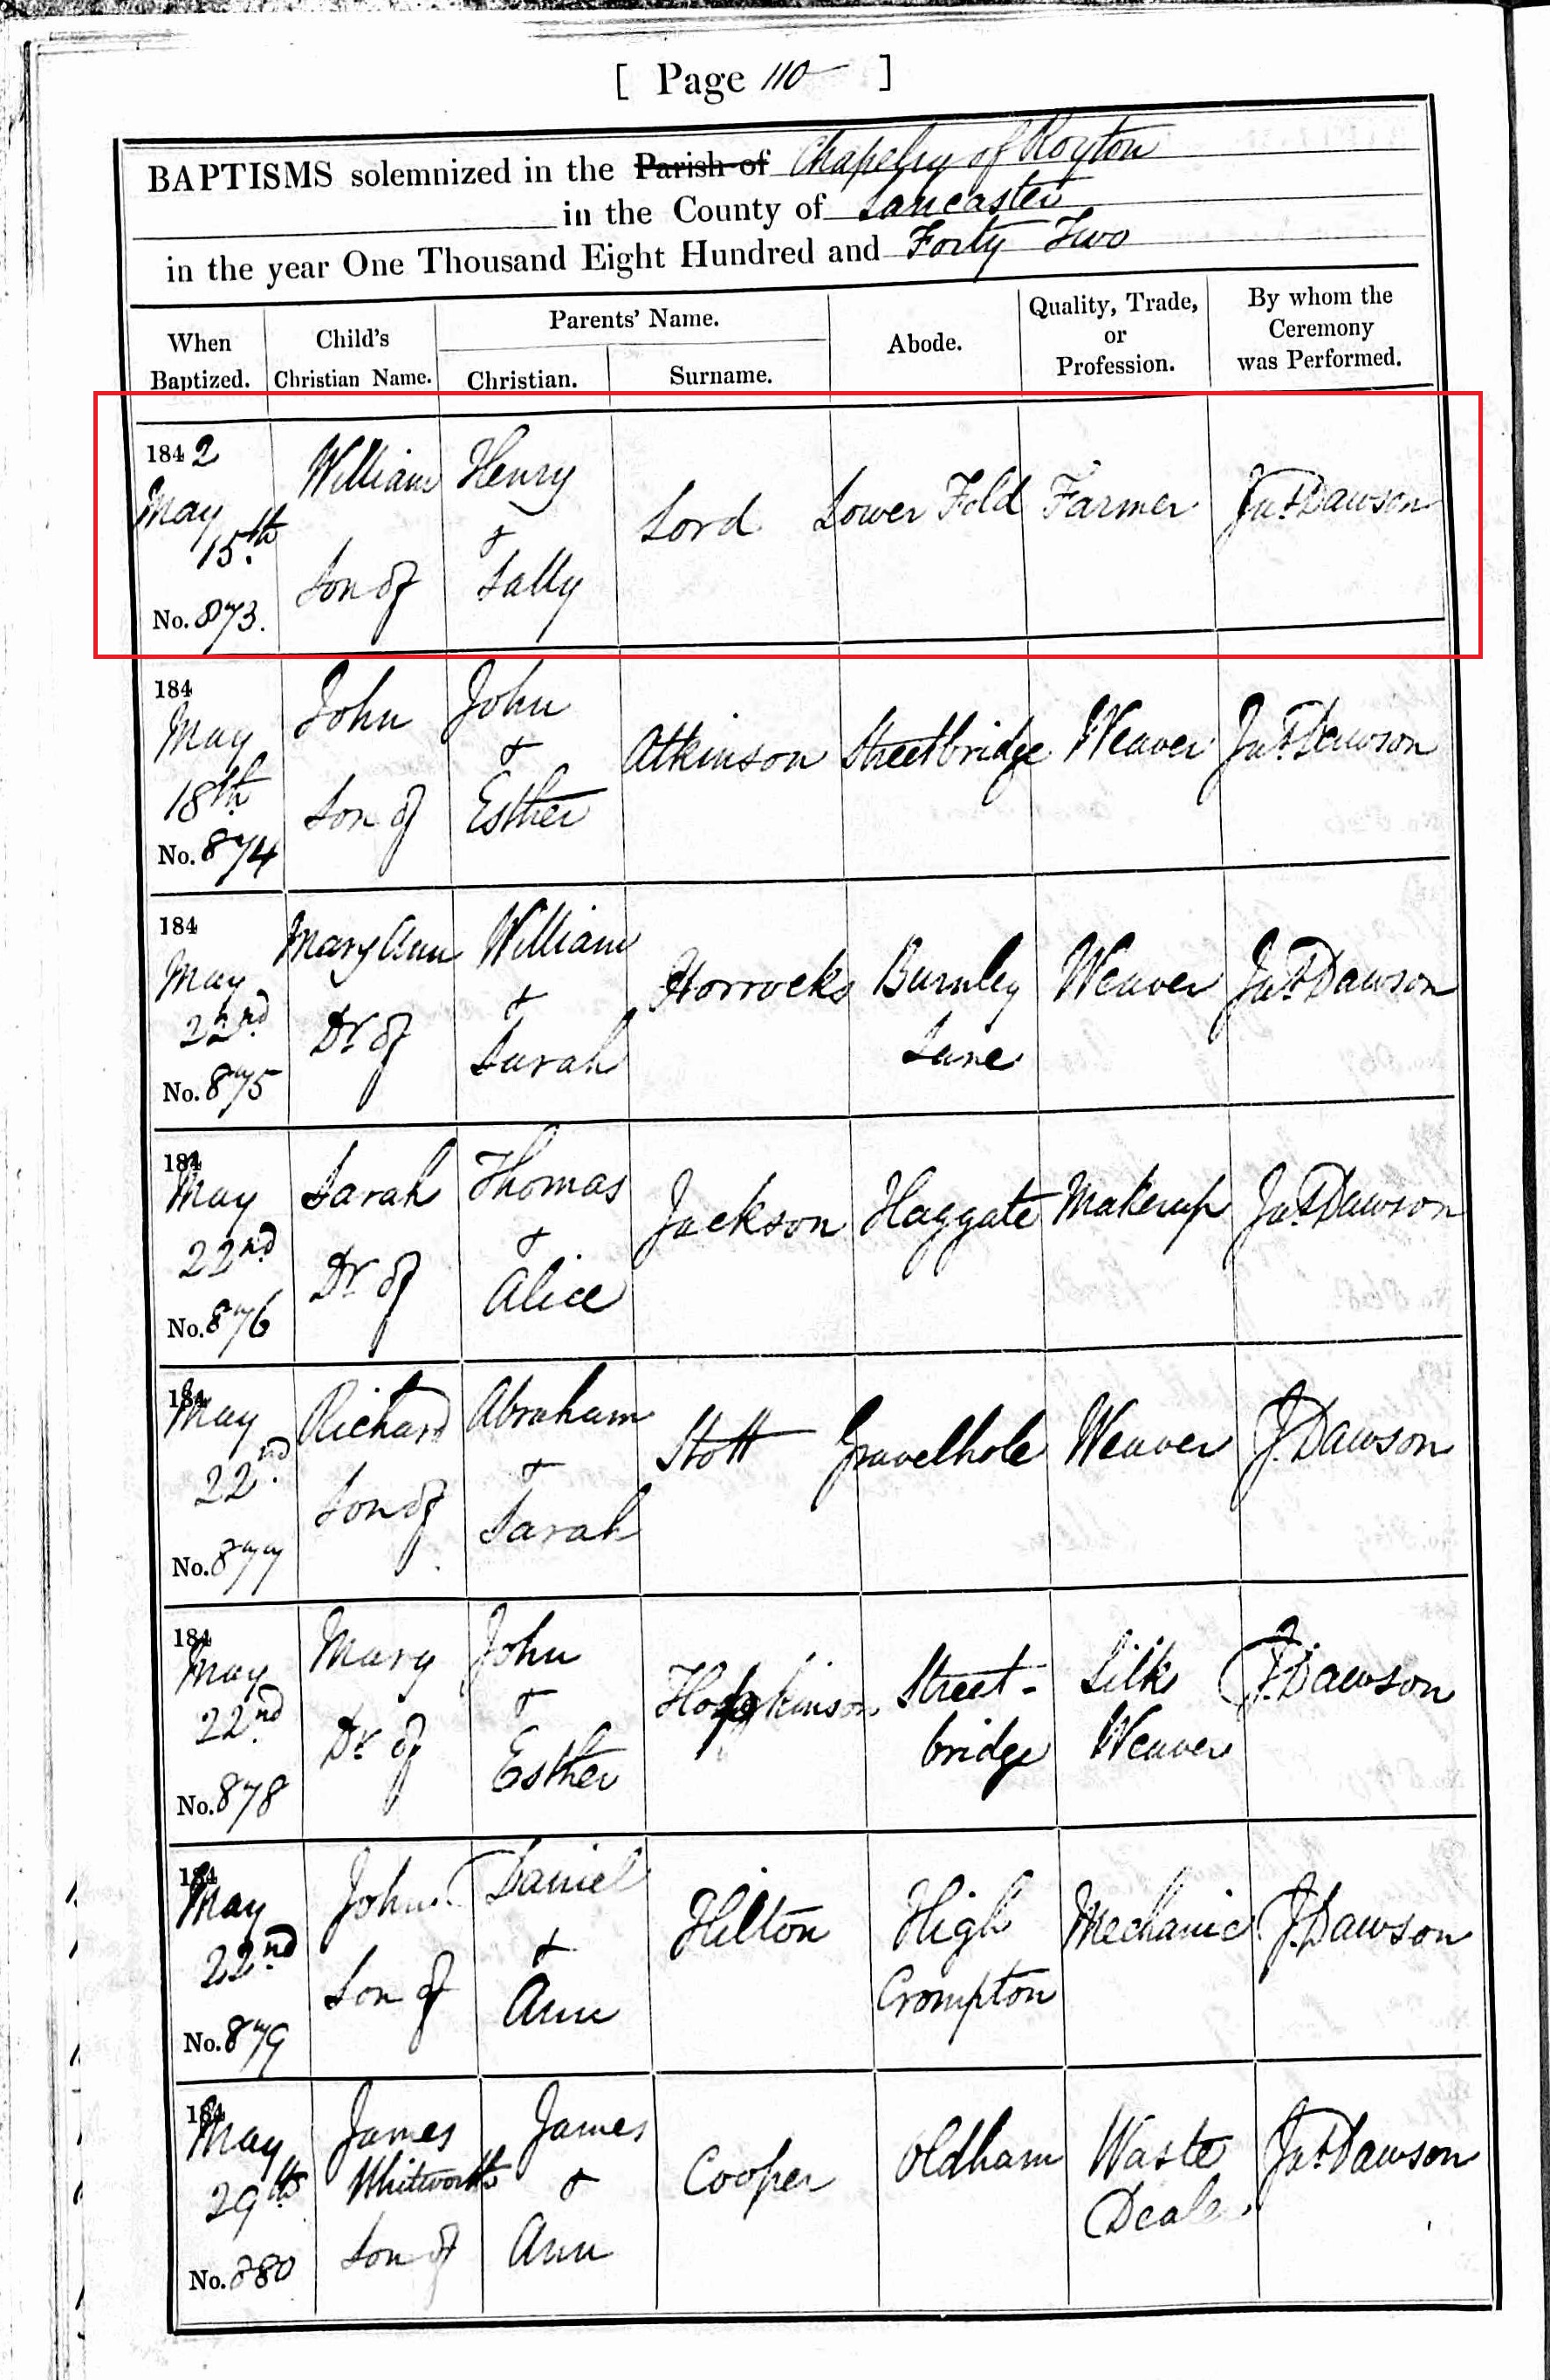 [ Page 110 ]
BAPTISMS solemnized in the Parish of Chapelry of Royton
in the County of Lancaster
in the year One Thousand Eight Hundred and Forty Two
When Baptized. Child's Christian Name. Parents' Name. Christian. Surname. Abode. Quality, Trade, or Profession. By whom the Ceremony was Performed.
1842 May 15th No. 873. William Son of Henry & Sally Lord Lower Fold Farmer Jas. Dawson
184 May 18th No. 874 John Son of John & Esther Atkinson Streetbridge Weaver Jas. Dawson
184 May 22nd No. 875 Mary Ann Dr of William & Sarah Horrocks Burnley Lane Weaver Jas. Dawson
184 May 22nd No. 876 Sarah Dr of Thomas & Alice Jackson Haggate Makerup Jas. Dawson
184 May 22nd No. 877 Richard Son of Abraham & Sarah Stott Gravelhole Weaver J. Dawson
184 May 22nd No. 878 Mary Dr of John & Esther Hopkinson Street-bridge Silk Weaver J. Dawson
184 May 22nd No. 879 John Son of Daniel & Ann Hilton High Crompton Mechanic J. Dawson
184 May 29th No. 880 James Whitworth Son of James & Ann Cooper Oldham Waste Dealer Jas. Dawson